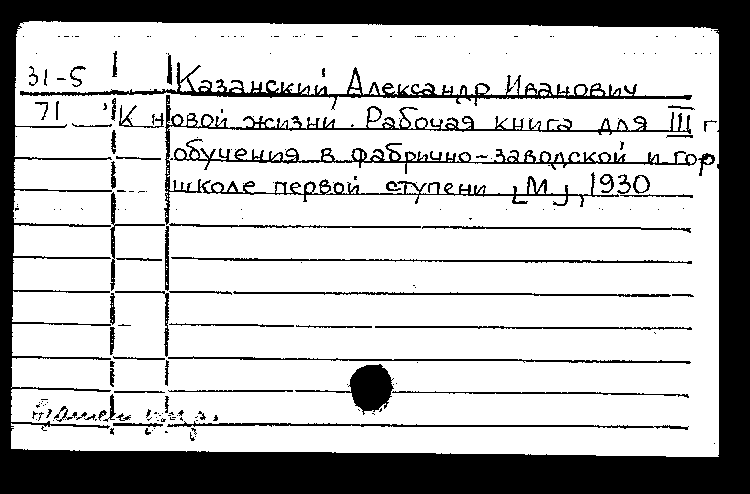 31-5 Казанский, Александр Иванович
71 К новой жизни. Рабочая книга для III г.
обучения в фабрично-заводской и гор.
школе первой ступени. [М.], 1930
Взамен